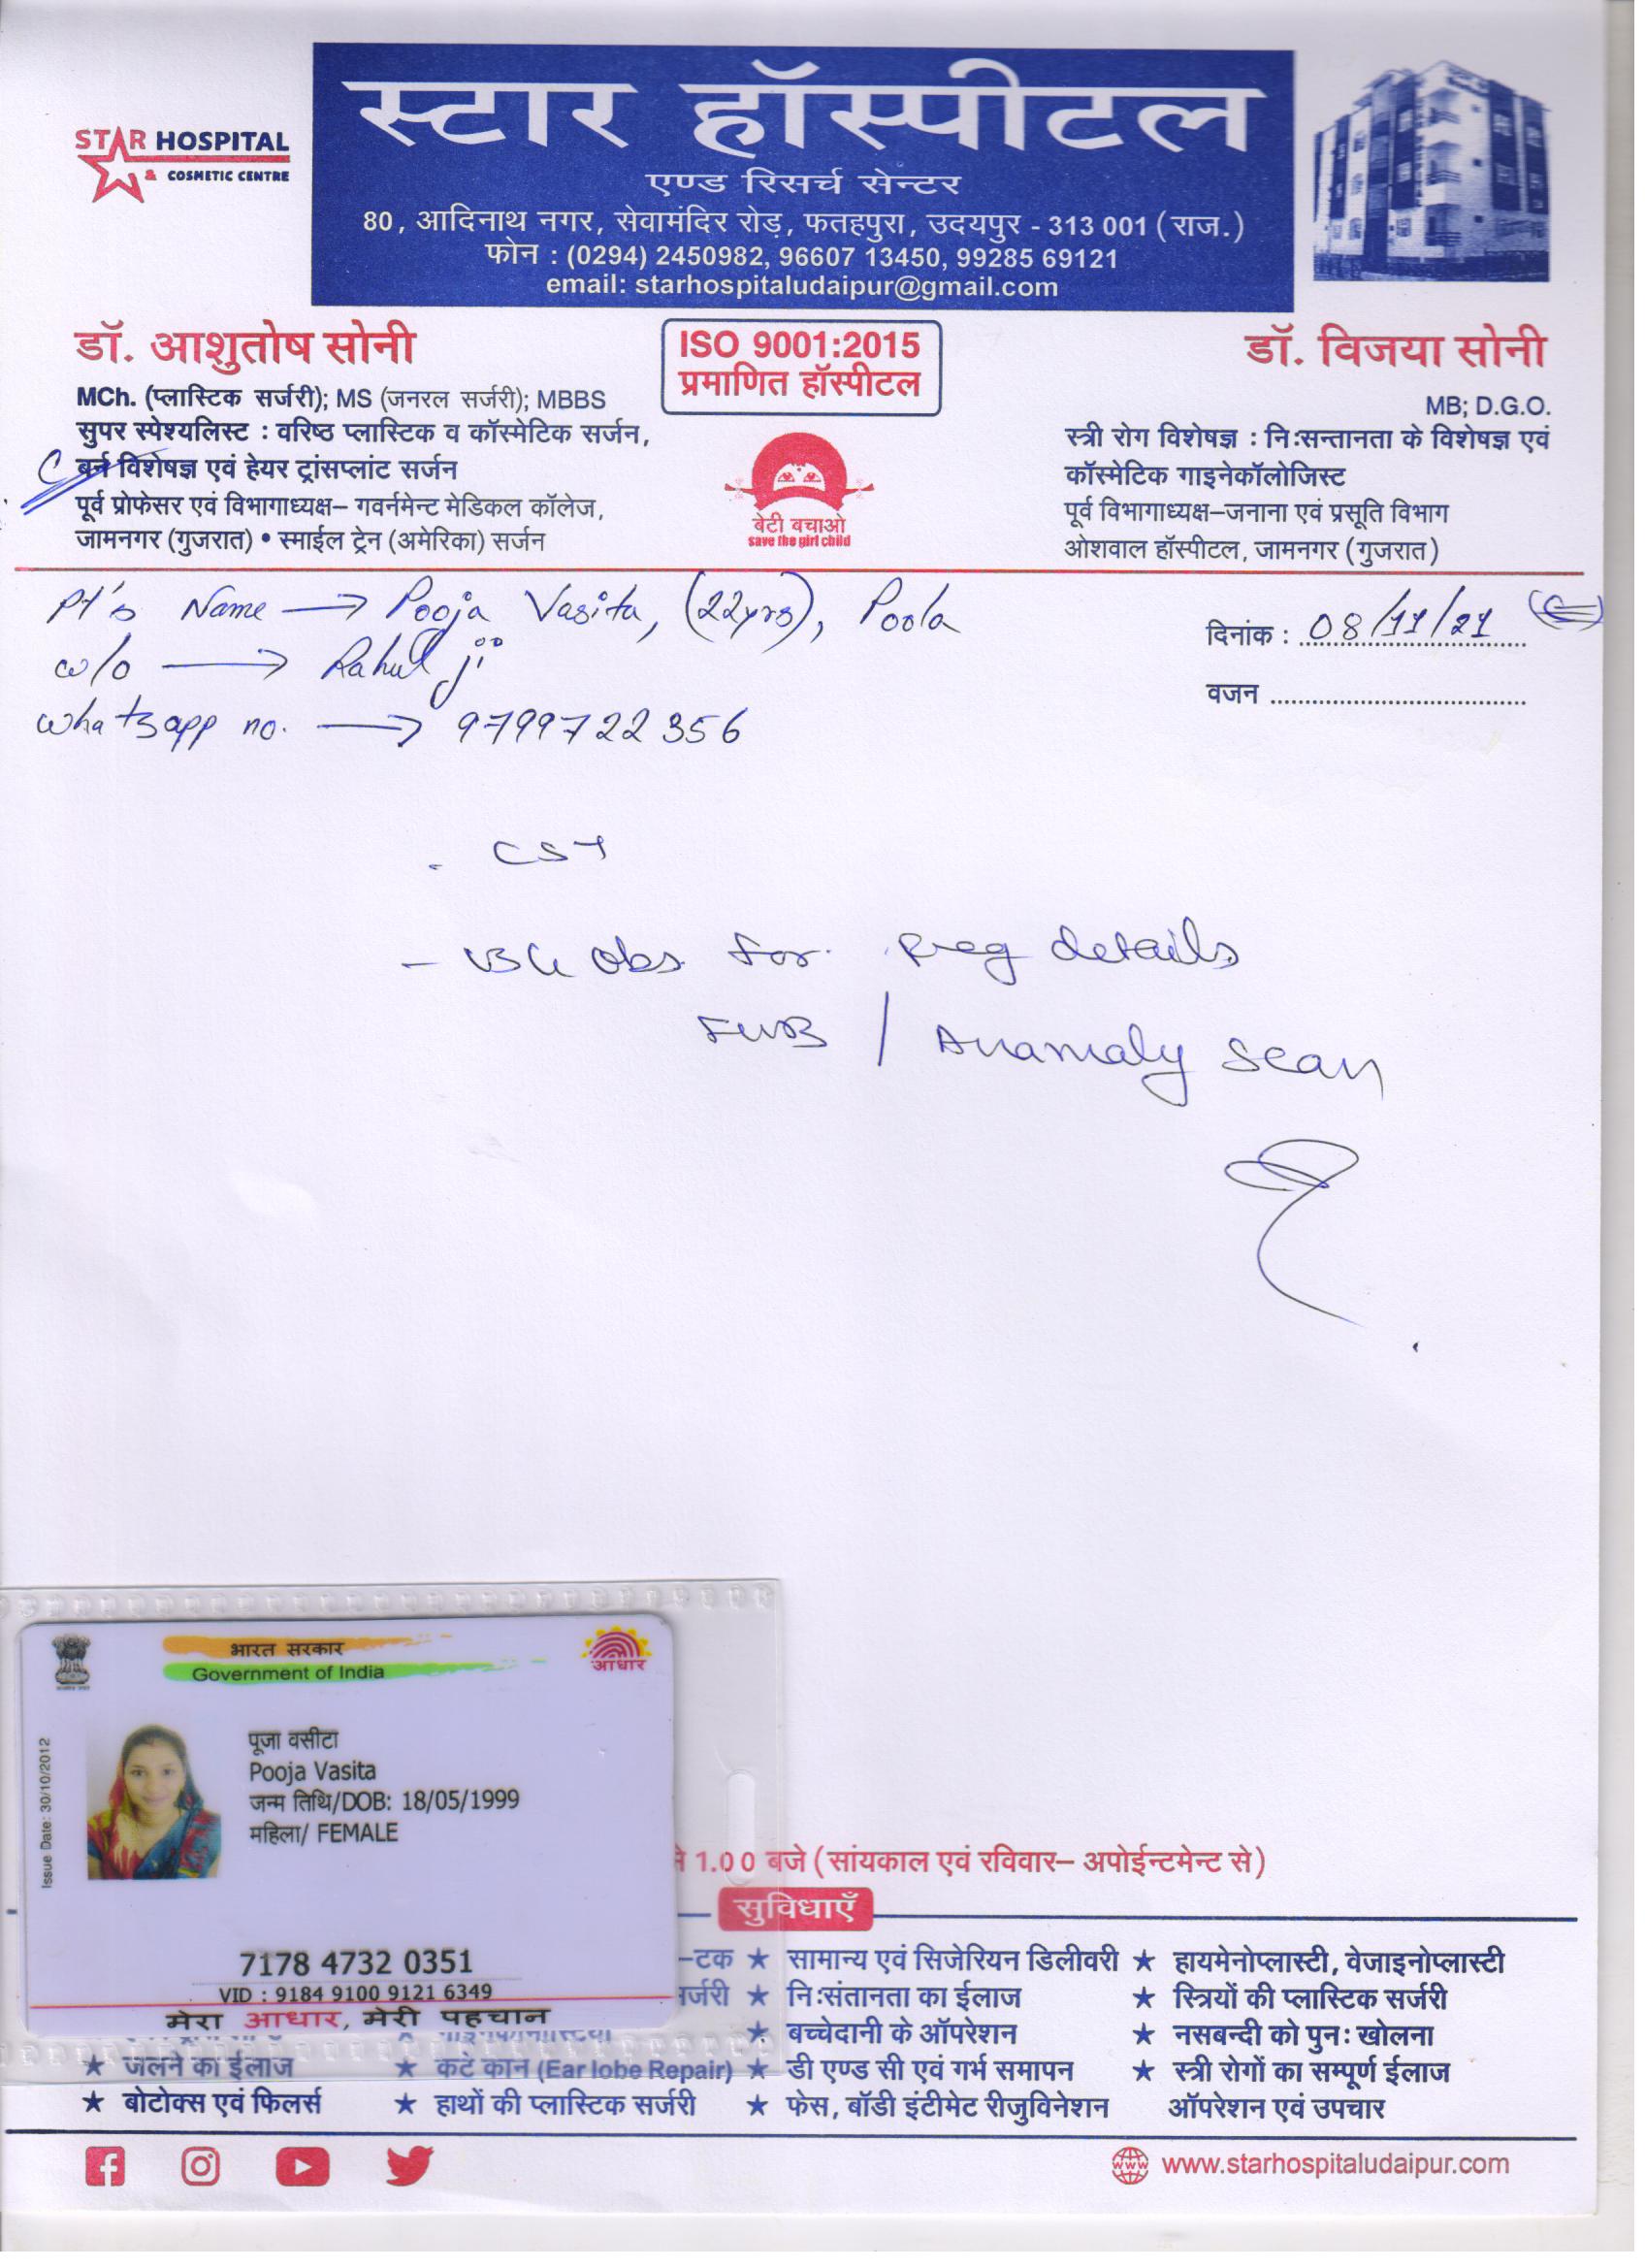 STAR HOSPITAL
& COSMETIC CENTRE
स्टार हॉस्पीटल
एण्ड रिसर्च सेन्टर
80, आदिनाथ नगर, सेवामंदिर रोड़, फतहपुरा, उदयपुर - 313 001 (राज.)
फोन : (0294) 2450982, 96607 13450, 99285 69121
email: starhospitaludaipur@gmail.com
डॉ. आशुतोष सोनी
MCh. (प्लास्टिक सर्जरी); MS (जनरल सर्जरी); MBBS
सुपर स्पेश्यलिस्ट : वरिष्ठ प्लास्टिक व कॉस्मेटिक सर्जन,
बर्न विशेषज्ञ एवं हेयर ट्रांसप्लांट सर्जन
पूर्व प्रोफेसर एवं विभागाध्यक्ष– गवर्नमेन्ट मेडिकल कॉलेज,
जामनगर (गुजरात) • स्माईल ट्रेन (अमेरिका) सर्जन
ISO 9001:2015
प्रमाणित हॉस्पीटल
बेटी बचाओ
save the girl child
डॉ. विजया सोनी
MB; D.G.O.
स्त्री रोग विशेषज्ञ : निःसन्तानता के विशेषज्ञ एवं
कॉस्मेटिक गाइनेकॉलोजिस्ट
पूर्व विभागाध्यक्ष–जनाना एवं प्रसूति विभाग
ओशवाल हॉस्पीटल, जामनगर (गुजरात)
Pt's Name → Pooja Vasita, (22yrs), Poola
w/o → Rahul ji
Whatsapp no. → 9799722356
दिनांक : 08/11/21
वजन
- CST
- USG Obs for Preg details
FWB / Anamaly Scan
भारत सरकार
Government of India
आधार
Issue Date: 30/10/2012
पूजा वसीटा
Pooja Vasita
जन्म तिथि/DOB: 18/05/1999
महिला/ FEMALE
7178 4732 0351
VID : 9184 9100 9121 6349
मेरा आधार, मेरी पहचान
1.00 बजे (सांयकाल एवं रविवार– अपोईन्टमेन्ट से)
सुविधाएँ
–टक ★ सामान्य एवं सिजेरियन डिलीवरी ★ हायमेनोप्लास्टी, वेजाइनोप्लास्टी
★ निःसंतानता का ईलाज ★ स्त्रियों की प्लास्टिक सर्जरी
★ बच्चेदानी के ऑपरेशन ★ नसबन्दी को पुनः खोलना
★ जलने का ईलाज ★ कटे कान (Ear lobe Repair) ★ डी एण्ड सी एवं गर्भ समापन ★ स्त्री रोगों का सम्पूर्ण ईलाज
★ बोटोक्स एवं फिलर्स ★ हाथों की प्लास्टिक सर्जरी ★ फेस, बॉडी इंटीमेट रीजुविनेशन ऑपरेशन एवं उपचार
www.starhospitaludaipur.com